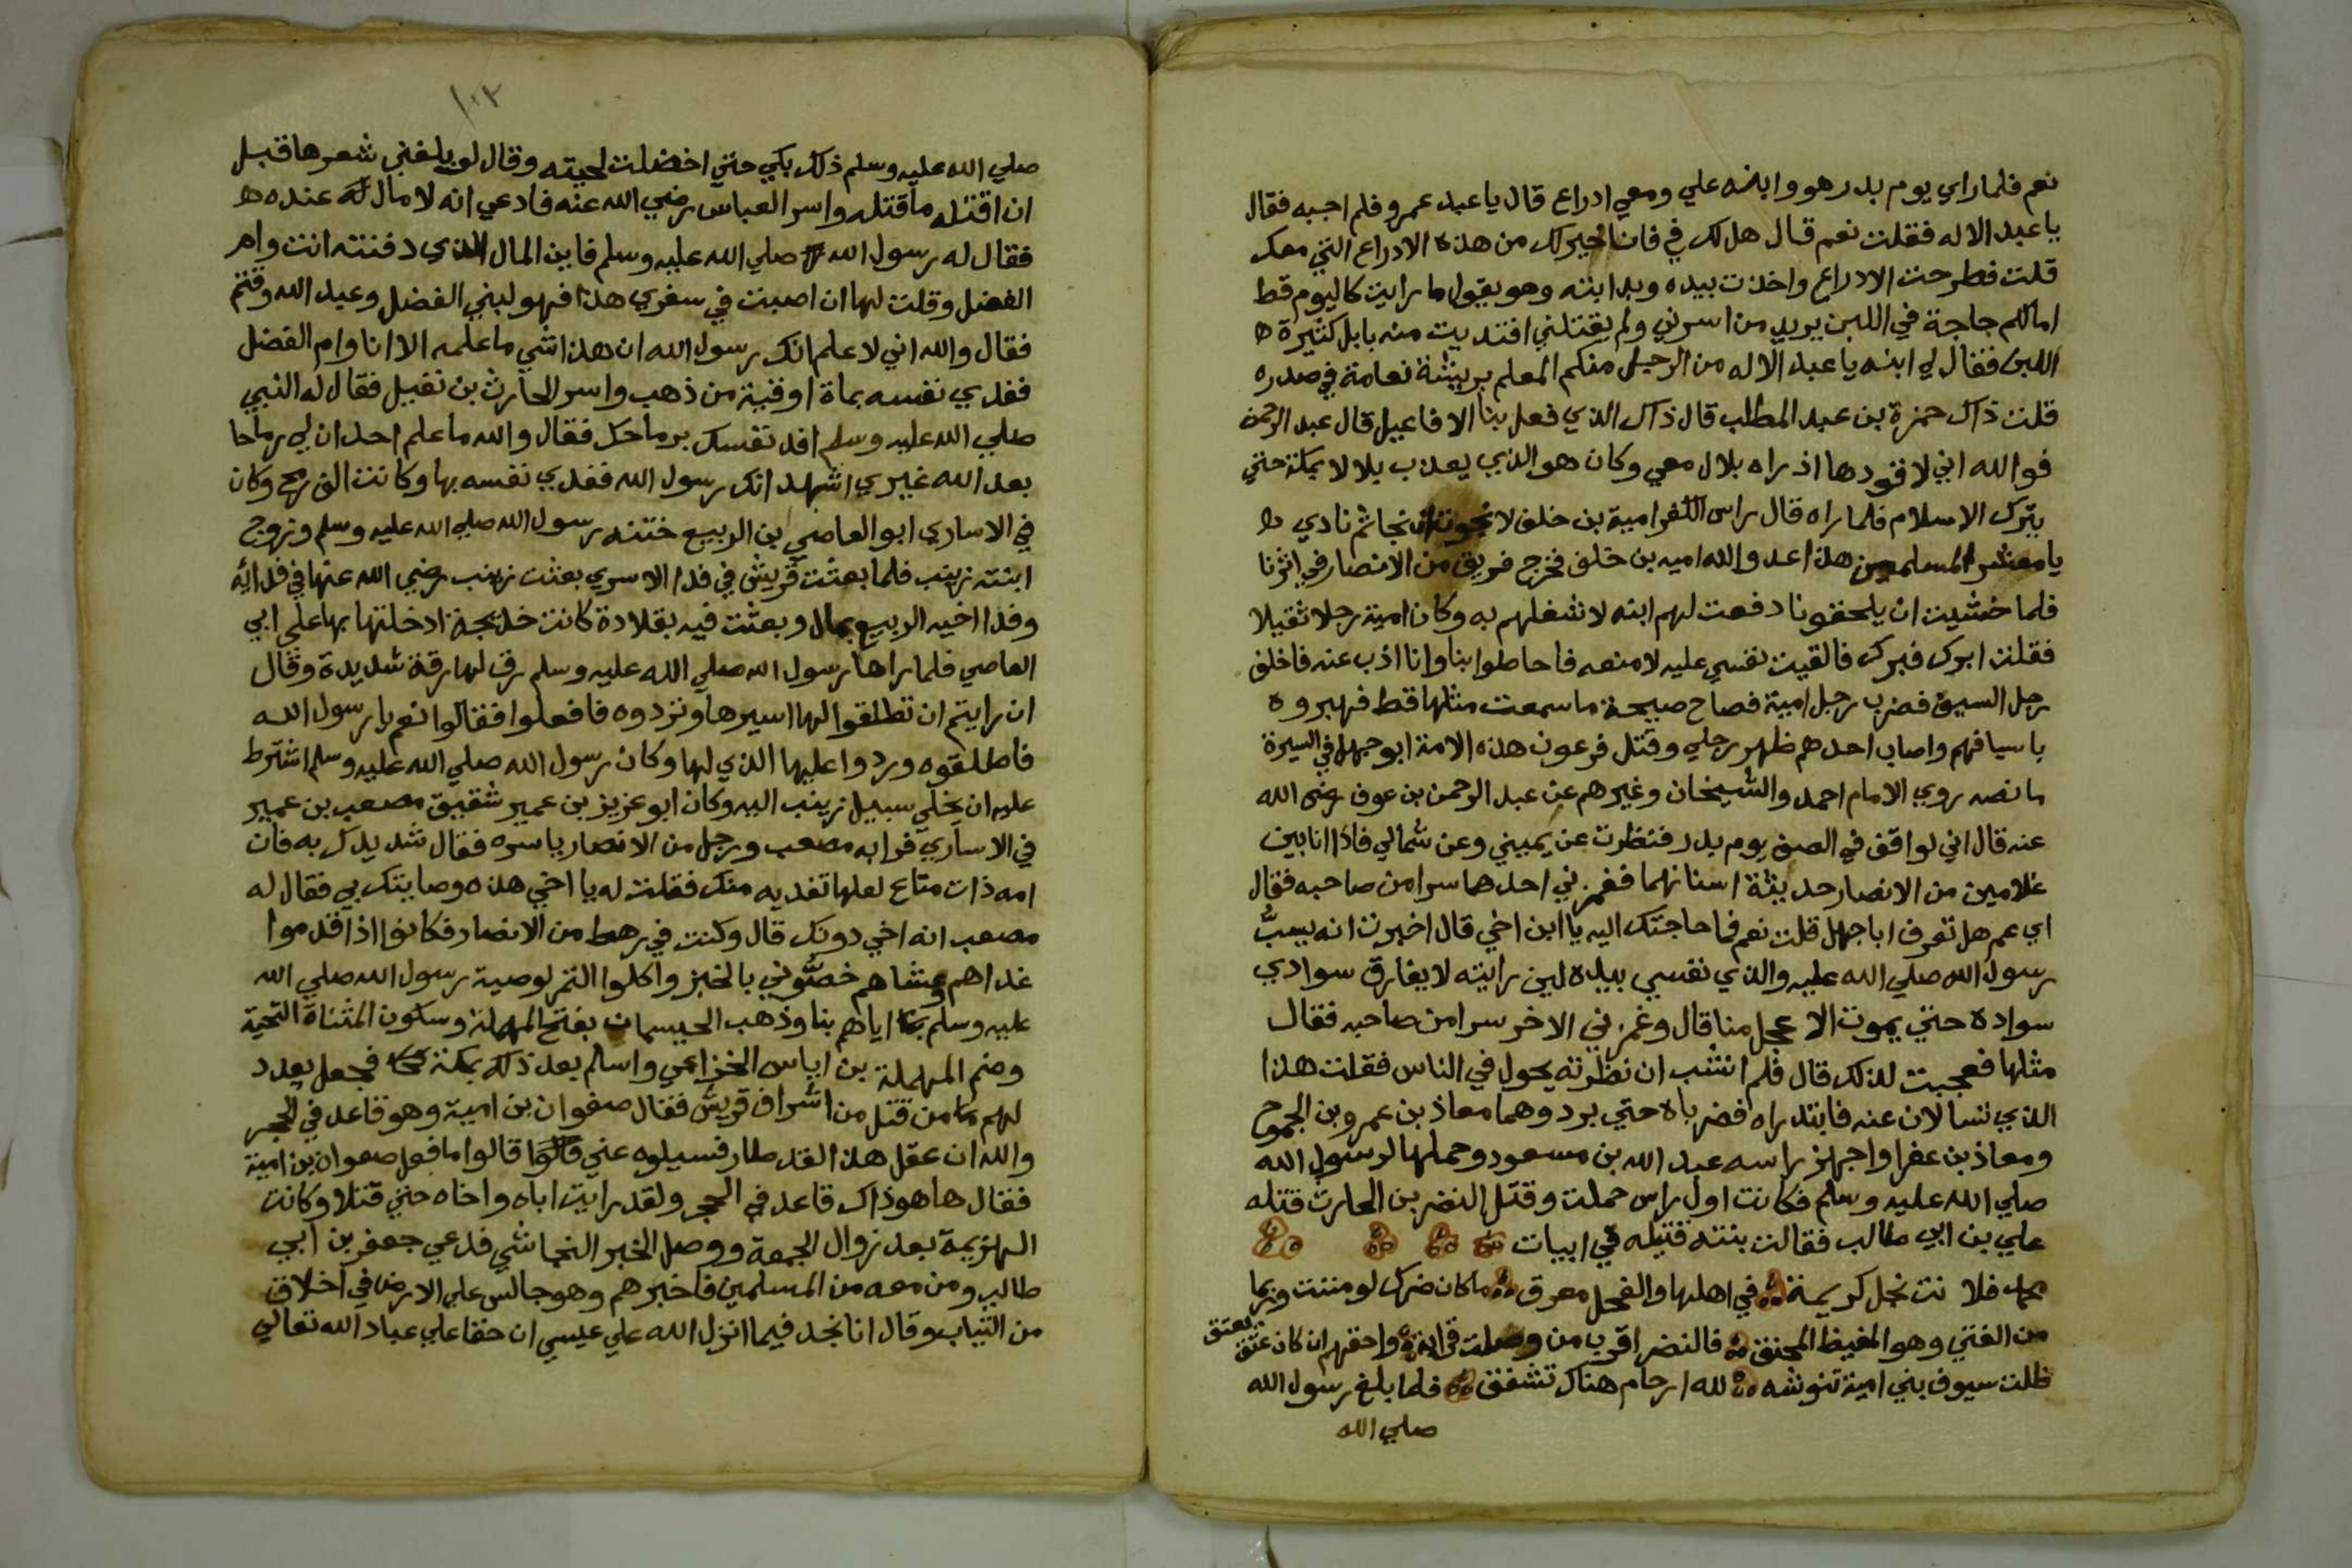 نعم فلما راي يوم بدر هو وابنه علي ومعي ادراع قال يا عبد عمرو فلم اجبه فقال
يا عبد الاله فقلت نعم قال هل لك في فانا خير لك من هذه الادراع التي معك
قلت فطرحت الادراع واخذت بيده ويد ابنه وهو يقول ما رايت كاليوم قط
اما لكم حاجة في اللبن يريد من اسرني ولم يقتلني افتديت منه بابل كثيرة
اللبن فقال لي ابنه يا عبد الاله من الرجل منكم المعلم بريشة نعامة في صدره
قلت ذاك حمزة بن عبد المطلب قال ذاك الذي فعل بنا الافاعيل قال عبد الرحمن
فوالله اني لاقودها اذ راه بلال معي وكان هو الذي يعذب بلالا بمكة حتي
يترك الاسلام فلما راه قال راس الكفر امية بن خلف لا نجوت ان نجا ثم نادي
يا معشر المسلمين هذا عدو الله اميه بن خلف فخرج فريق من الانصار في اثرنا
فلما خشيت ان يلحقونا دفعت لهم ابنه لاشغلهم به وكان امية رجلا ثقيلا
فقلت ابرك فبرك فالقيت نفسي عليه لامنعه فاحاطوا بنا وانا اذب عنه فاخلف
رجل السيف فضرب رجل امية فصاح صيحة ما سمعت مثلها قط فهبروه
باسيافهم واصاب احدهم ظهر رجلي وقتل فرعون هذه الامة ابو جهل في السيرة
ما نصه روي الامام احمد والشيخان وغيرهم عن عبد الرحمن بن عوف رضي الله
عنه قال اني لواقف في الصف يوم بدر فنظرت عن يميني وعن شمالي فاذا انا بين
غلامين من الانصار حديثة اسنانهما فغمزني احدهما سرا من صاحبه فقال
اي عم هل تعرف ابا جهل قلت نعم فما حاجتك اليه يا ابن اخي قال اخبرت انه يسبُّ
رسول الله صلي الله عليه والذي نفسي بيده لين رايته لا يفارق سوادي
سواده حتي يموت الاعجل منا قال وغمزني الاخر سرا من صاحبه فقال
مثلها فعجبت لذلك قال فلم انشب ان نظرته يجول في الناس فقلت هذا
الذي تسالان عنه فابتدراه فضرباه حتي برد وهما معاذ بن عمرو بن الجموح
ومعاذ بن عفرا واجهز راسه عبد الله بن مسعود وحملها لرسول الله
صلي الله عليه وسلم فكانت اول راس حملت وقتل النضر بن الحارث قتله
علي بن ابي طالب فقالت بنته قتيله في ابيات
فلا نت نجل كريمة في اهلها والفحل معرق ما كان ضرك لو مننت وربما
من الفتي وهو المغيظ المحنق فالنضر اقرب من وصلت قرابة واحقهم ان كان عتق
يعتق
ظلت سيوف بني امية تنوشه لله ارحام هناك تشقق فلما بلغ رسول الله
صلي الله
١٠٣
صلي الله عليه وسلم ذلك بكي حتي اخضلت لحيته وقال لو بلغني شعرها قبل
ان اقتله ما قتلته واسر العباس رضي الله عنه فادعي انه لا مال له عنده
فقال له رسول الله صلي الله عليه وسلم فاين المال الذي دفنته انت وام
الفضل وقلت لها ان اصبت في سفري هذا فهو لبني الفضل وعبد الله وقثم
فقال والله اني لا علم انك رسول الله ان هذا شي ما علمه الا انا وام الفضل
ففدي نفسه بماة اوقية من ذهب واسر الحارث بن نفيل فقال له النبي
صلي الله عليه وسلم افد نفسك برماحك فقال والله ما علم احد ان لي رماحا
بعد الله غيري اشهد انك رسول الله ففدي نفسه بها وكانت الف رمح وكان
في الاساري ابو العاصي بن الربيع ختنه رسول الله صلي الله عليه وسلم وزوج
ابنته زينب فلما بعثت قريش في فدا الاسري بعثت زينب رضي الله عنها في فدائه
وفدا اخيه الربيع بمال وبعثت فيه بقلادة كانت خديجة ادخلتها بها علي ابي
العاصي فلما راها رسول الله صلي الله عليه وسلم رق لها رقة شديدة وقال
ان رايتم ان تطلقوا لها اسيرها وتردوه فافعلوا فقالوا نعم يا رسول الله
فاطلقوه وردوا عليها الذي لها وكان رسول الله صلي الله عليه وسلم اشترط
عليه ان يخلي سبيل زينب اليه وكان ابو عزيز بن عمير شقيق مصعب بن عمير
في الاساري فرا به مصعب ورجل من الانصار ياسره فقال شد يدك به فان
امه ذات متاع لعلها تفديه منك فقلت له يا اخي هذه وصايتك بي فقال له
مصعب انه اخي دونك قال وكنت في رهط من الانصار فكانوا اذا قدموا
غداهم وعشاهم خصُّوني بالخبز واكلوا التمر لوصية رسول الله صلي الله
عليه وسلم اياهم بنا وذهب الحيسمان بفتح المهملة وسكون المثناة التحتية
وضم المهملة بن اياس الخزاعي واسلم بعد ذلك بمكة فجعل يعدد
لهم من قتل من اشراف قريش فقال صفوان بن امية وهو قاعد في الحجر
والله ان عقل هذا لقد طار فسيلوه عني قالوا ما فعل صفوان بن امية
فقال ها هو ذاك قاعد في الحجر ولقد رايت اباه واخاه حتي قتلا وكانت
الهزيمة بعد زوال الجمعة ووصل الخبر النجاشي فدعي جعفر بن ابي
طالب ومن معه من المسلمين فاخبرهم وهو جالس علي الارض في اخلاق
من الثياب وقال انا نجد فيما انزل الله علي عيسي ان حقا علي عباد الله تعالي